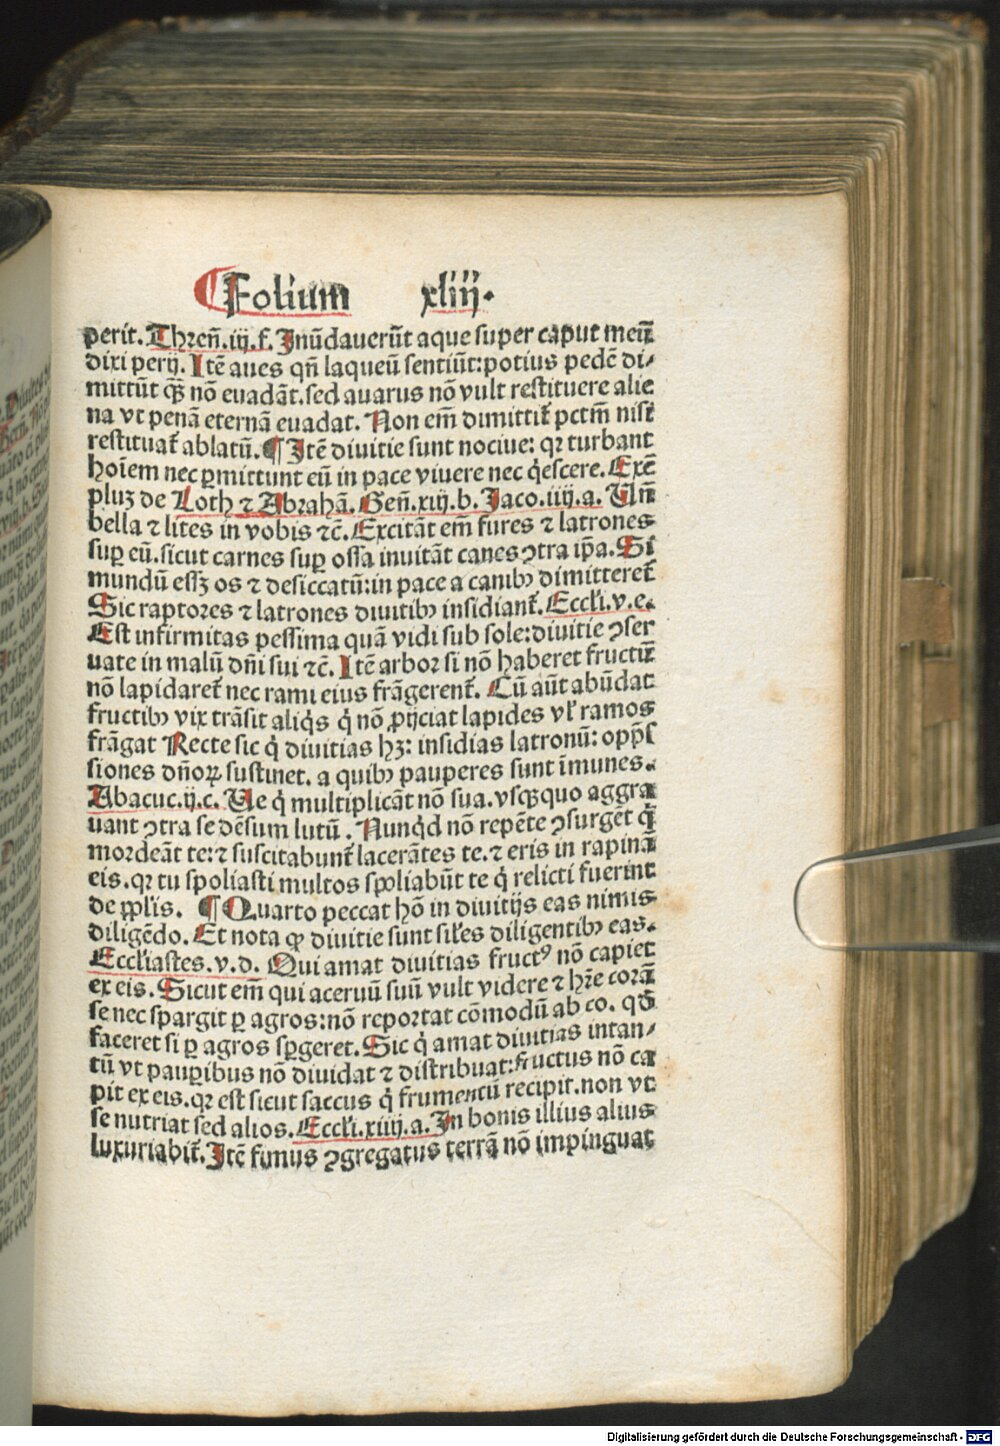 ¶Folium xliij.
perit. Threñ.iij.f. Inūdauerūt aque super caput meū
dixi perij. Itē aues qñ laqueū sentiūt: potius pedē di⸗
mittūt qȝ nō euadāt. sed auarus nō vult restituere alie
na vt penā eternā euadat. Non em̄ dimittit᷑ pctm̄ nisi
restituat᷑ ablatū. ¶ Itē diuitie sunt nociue: qꝛ turbant
hoīem nec ꝑmittunt eū in pace viuere nec q̇escere. Exē
pluȝ de Loth ⁊ Abrahā. Geñ.xiij.b. Jaco.iiij.a. Vñ
bella ⁊ lites in vobis ⁊c̄. Excitāt em̄ fures ⁊ latrones
suꝑ eū. sicut carnes suꝑ ossa inuitāt canes ꝯtra ip̄a. Si
mundū essȝ os ⁊ desiccatū: in pace a canibꝰ dimitteret᷑
Sic raptores ⁊ latrones diuitibꝰ insidiant᷑. Eccl'i.v.e.
Est infirmitas pessima quā vidi sub sole: diuitie ꝯser
uate in malū dñi sui ⁊c̄. Itē arbor si nō haberet fructū
nō lapidaret᷑ nec rami eius frāgerent᷑. Cū aūt abūdat
fructibꝰ vix trāsit aliq̇s q̇ nō ꝓijciat lapides vl' ramos
frāgat Recte sic q̇ diuitias hȝ: insidias latronū: opp̄s
siones dñoꝝ sustinet. a quibꝰ pauperes sunt īmunes.
Abacuc.ij.c. Ue q̇ multiplicāt nō sua. vsqȝquo aggra
uant ꝯtra se dēsum lutū. Nunq̇d nō repēte ꝯsurgēt q̇
mordeāt te: ⁊ suscitabunt᷑ lacerātes te. ⁊ eris in rapinā
eis. qꝛ tu spoliasti multos spoliabūt te q̇ relicti fuerint
de ppl'is. ¶ Quarto peccat hō in diuitijs eas nimis
diligēdo. Et nota ꝙ diuitie sunt sil'es diligentibꝰ eas.
Eccl'iastes.v.d. Qui amat diuitias fructꝰ nō capiet
ex eis. Sicut em̄ qui aceruū suū vult videre ⁊ hr̄e corā
se nec spargit ꝑ agros: nō reportat cōmodū ab eo. qd̄
faceret si ꝑ agros spgeret. Sic q̇ amat diuitias intan⸗
tū vt pauꝑibus nō diuidat ⁊ distribuat: fructus nō ca
pit ex eis. qꝛ est sicut saccus q̇ frumentū recipit. non vt
se nutriat sed alios. Eccl'i.xiiij.a. In bonis illius alius
luxuriabit᷑. Itē fimus ꝯgregatus terrā nō impinguat
Digitalisierung gefördert durch die Deutsche Forschungsgemeinschaft - DFG